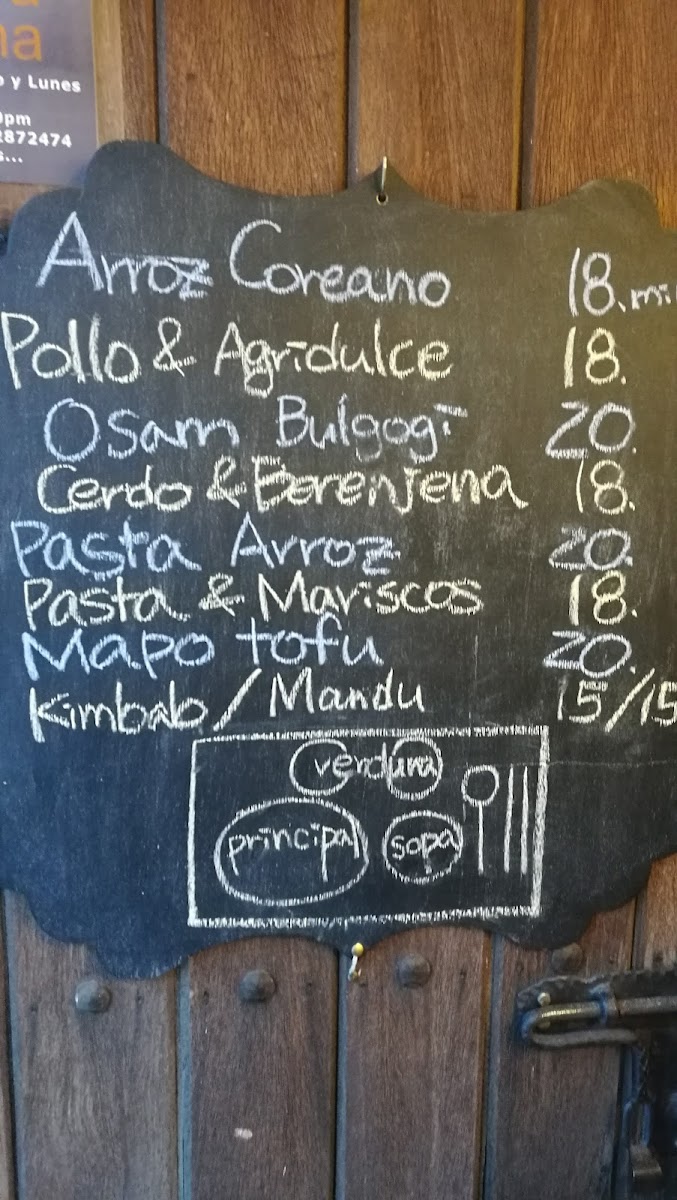 na
y Lunes
0pm
2872474
s...
Arroz Coreano 18.mil
Pollo & Agridulce 18.
Osam Bulgogi 20.
Cerdo & Berenjena 18.
Pasta Arroz 20.
Pasta & Mariscos 18.
Mapo tofu 20.
Kimbab/Mandu 15/15
verdura
principal sopa